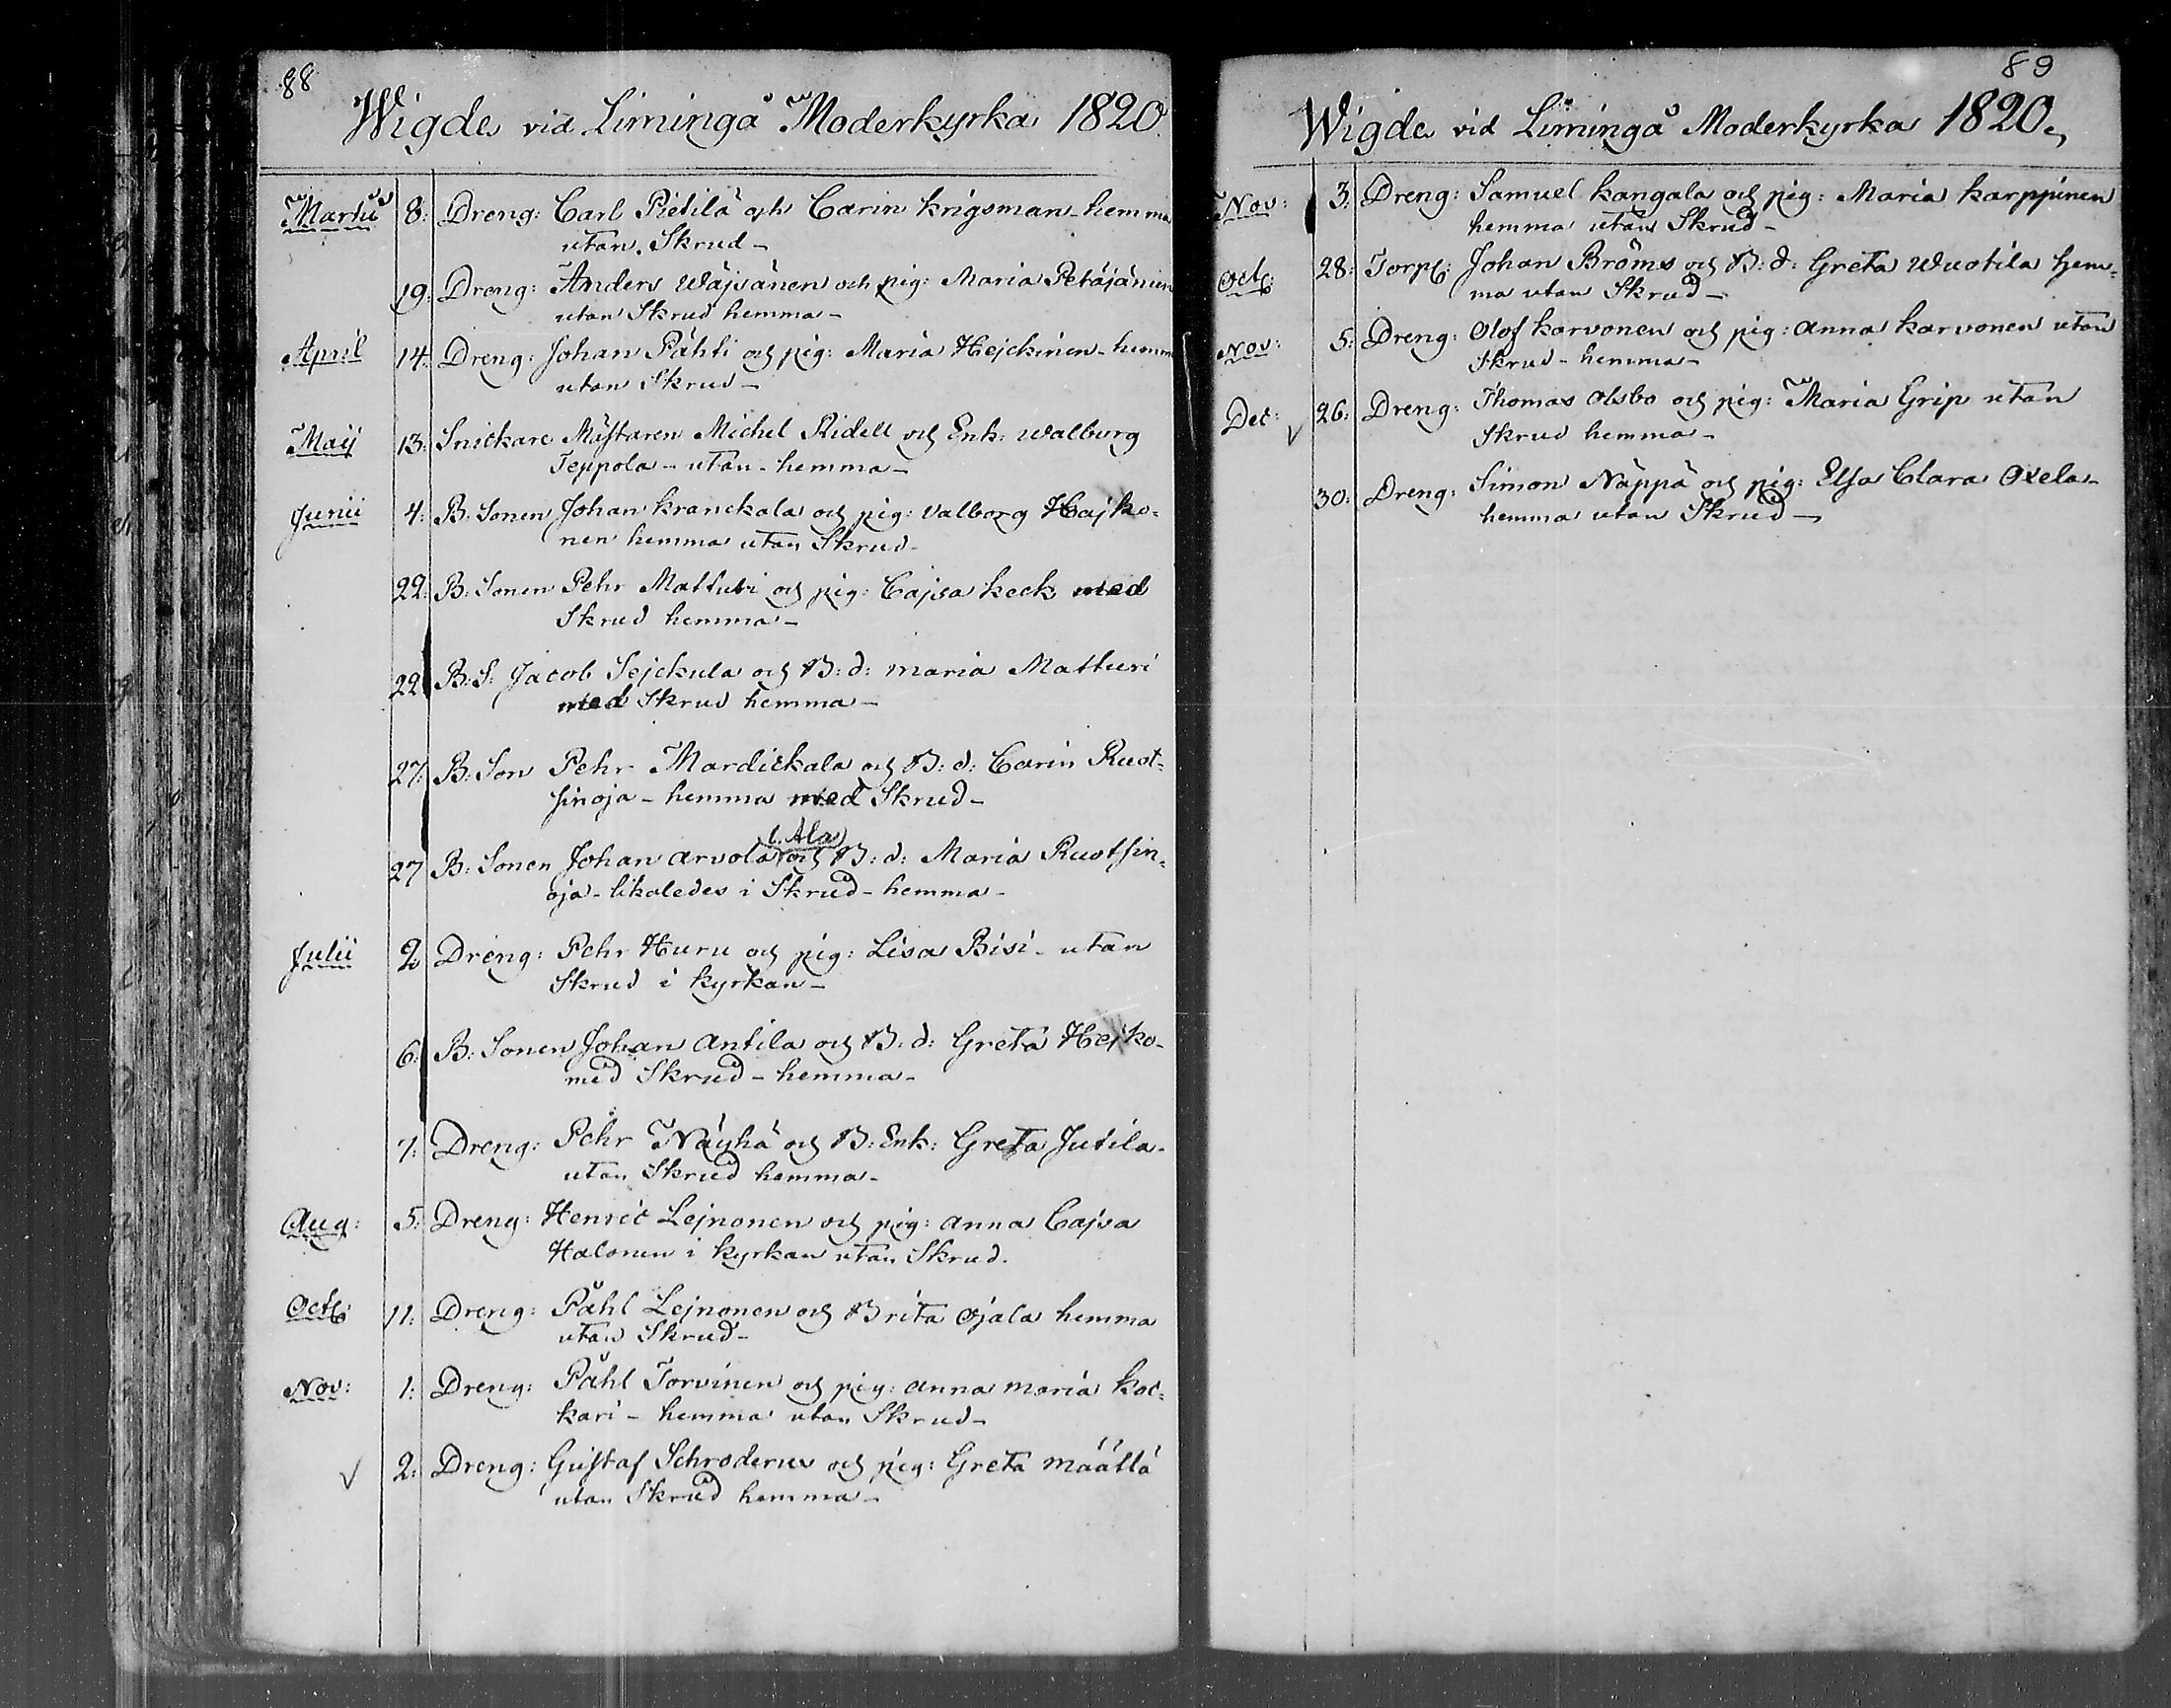 88
Wigde vid Limingå Moderkyrka 1820.
Martii 8: Dreng: Carl Pietilä och Carin Krigsman - hemma
utan Skrud -
19: Dreng: Anders Wäjsänen och pig: Maria Petäjänien
utan Skrud hemma -
April 14: Dreng: Johan Pähti och pig: Maria Hejckinen - hemm
utan Skrud -
Maij 13: Snickare Mästaren Michel Ridell och Enk: Walborg
Teppola - utan - hemma -
Junii 4: B: Sonen Johan Kranckala och pig: Valborg Hajko=
nen hemma utan Skrud -
22: B: Sonen Pehr Matturi och pig: Cajsa Keck med
Skrud hemma -
22 B: S: Jacob Sejckula och B: d: Maria Matturi
med Skrud hemma -
27: B: Son Pehr Mardickala och B: d: Carin Ruot=
sinoja - hemma med Skrud -
l. Ala
27 B: Sonen Johan Arvola och B: d: Maria Ruotsin=
oja - likaledes i Skrud - hemma -
Julii 2 Dreng: Pehr Huru och pig: Lisa Bisi - utan
Skrud i kyrkan -
6: B: Sonen Johan Antila och B: d: Greta Hejko -
med Skrud - hemma -
7: Dreng: Pehr Näyhä och B: Enk: Greta Jutila -
utan Skrud hemma -
Aug: 5: Dreng: Henric Lejnonen och pig: Anna Cajsa
Halonen i kyrkan utan Skrud.
Octb: 11: Dreng: Påhl Lejnonen och Brita Ojala hemma
utan Skrud -
Nov: 1: Dreng: Påhl Torvinen och pig: Anna Maria Koc=
kari - hemma utan Skrud -
2: Dreng: Gustaf Schroderus och pig: Greta Määttä
utan Skrud hemma -
89
Wigde vid Limingå Moderkyrka 1820.
Nov: 3. Dreng: Samuel Kangala och pig: Maria Karppinen
hemma utan Skrud -
Octb: 28: Torp: Johan Bröms och B: d: Greta Wuotila hem=
ma utan Skrud -
Nov: 5: Dreng: Olof Karvonen och pig: Anna Karvonen utan
Skrud - hemma -
Dec: 26: Dreng: Thomas Olsbo och pig: Maria Grip utan
Skrud hemma -
30: Dreng: Simon Näppä och pig: Elsa Clara Oxela -
hemma utan Skrud -